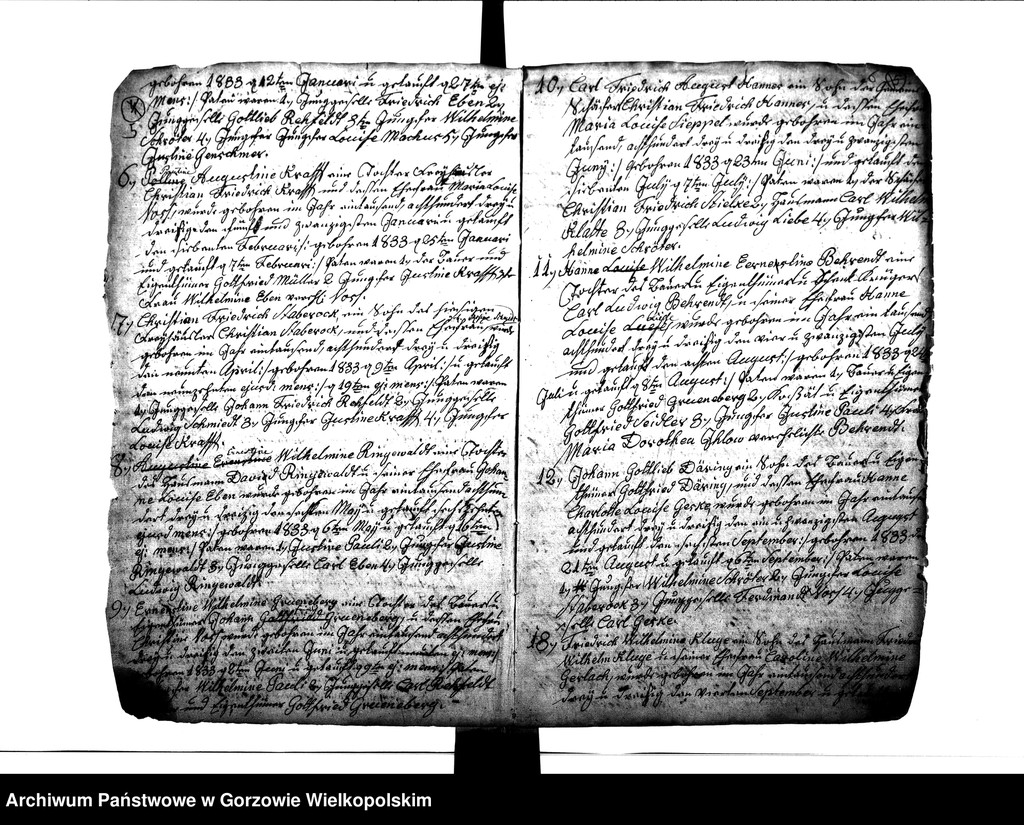 gebohren 1833 d 12ten Januari u getauft d 27t ej
mens:/ Paten waren 1, Junggeselle Friedrich Eben 2,
Junggeselle Gottlieb Rehfeldt 3te Jungfer Wilhelmine
Schröter 4, Jungfer Louise Machuss 5, Jungfer
Justine Genschmer.
6, Augustine Krafft eine Tochter
Christian Friedrich Krafft und dessen Ehefrau Maria Louise
Voss, wurde gebohren im Jahr eintausend, achthundert drey u
dreißig den fünf und zwanzigsten Januari u getauft
den siebenten Februari:/ gebohren 1833 d 25ten Januari
und getauft d 7ten Februari:/ Paten waren 1, der Bauer und
Eigenthümer Gottfried Müller 2 Jungfer Justine Krafft 3,
Frau Wilhelmine Eben Voss.
7, Christian Friedrich Haberock, ein Sohn des hiesigen
Christian Haberock, und dessen Ehefrau wurde
gebohren im Jahr eintausend, achthundert drey u dreißig
den neunten April:/ gebohren 1833 d 9ten April:/ u getauft
den neunzehnten ejusd: mens:/ d 19ten ej mens:/ Paten waren
1, Junggeselle Johann Friedrich Rehfeldt 2, Junggeselle
Ludwig Schmiedt 3, Jungfer Justine Krafft 4, Jungfer
Louise Krafft.
8, Wilhelmine Ringewaldt eine Tochter
des Hausmann David Ringewaldt u seiner Ehefrau Johan
ne Louise Eben wurde gebohren im Jahr eintausend achthun
dert drey u dreißig den sechsten May u getauft
ejusd mens:/ gebohren 1833 d 6ten May u getauft d 16ten
ej: mens:/ Paten waren 1, Justine Pauli 2, Jungfer Justine
Ringewaldt 3, Junggeselle Carl Eben 4, Junggeselle
Ludwig Ringewaldt
9, Ernestine Wilhelmine Grueneberg eine Tochter des Bauer u
Eigenthümer Johann Grueneberg, u dessen Ehefrau
Christine Voss wurde gebohren im Jahr eintausend achthundert
drey u dreißig den zweiten Juni u getauft
gebohren 1833 d 2ten Juny u getauft d 9ten ej: mens:/ Paten
Wilhelmine Pauli 2, Junggeselle Carl Rehfeldt
und Eigenthümer Gottfried Grueneberg.
10, Carl Friedrich August Hanner ein Sohn des
Schäfer Christian Friedrich Hanner, u dessen Ehefrau
Maria Louise Sieppel wurde gebohren im Jahr ein
tausend, achthundert drey u dreißig den drey u zwanzigsten
Juny:/ gebohren 1833 d 23ten Juni:/ und getauft d
siebenten July d 7ten July:/ Paten waren 1, der Schäfer
Christian Friedrich Stielke 2, Hausmann Carl Wilhelm
Klatte 3, Junggeselle Ludwig Liebe 4, Jungfer Wil
helmine Schröter.
11, Hanne Louise Wilhelmine Ernestine Behrendt eine
Tochter des Bauer u Eigenthümer u Schenk Krüger
Carl Ludwig Behrendt, u seiner Ehefrau Hanne
Louise wurde gebohren im Jahr eintausend
achthundert drey u dreißig den vier u zwanzigsten July
und getauft den achten August:/ gebohren 1833 d 24
Juli u getauft d 8ten August:/ Paten waren 1, Bauer u Eigen
thümer Gottfried Grueneberg 2, Kossät u Eigenthümer
Gottfried Seidler 3, Jungfer Justine Pauli 4, Frau
Maria Dorothea Ihlow verehelichte Behrendt.
12, Johann Gottlieb Däring ein Sohn des Bauer u Eigen
thümer Gottfried Däring, und dessen Ehefrau Hanne
Charlotte Louise Gerke, wurde gebohren im Jahr eintausend
achthundert drey u dreißig den ein u zwanzigsten August
und getauft den sechsten September:/ gebohren 1833 den
21ten August u getauft d 6ten September:/ Paten waren
1, Jungfer Wilhelmine Schröter 2, Jungfer Louise
Haberock 3, Junggeselle Ferdinand Voss 4, Jungge=
selle Carl Gerke.
13, Friedrich Wilhelmine Kluge ein Sohn des Hausmann Friedrich
Wilhelm Kluge u seiner Ehefrau Caroline Wilhelmine
Gerlach, wurde gebohren im Jahr eintausend achthundert
drey u dreißig den vierten September u getauft
Archiwum Państwowe w Gorzowie Wielkopolskim